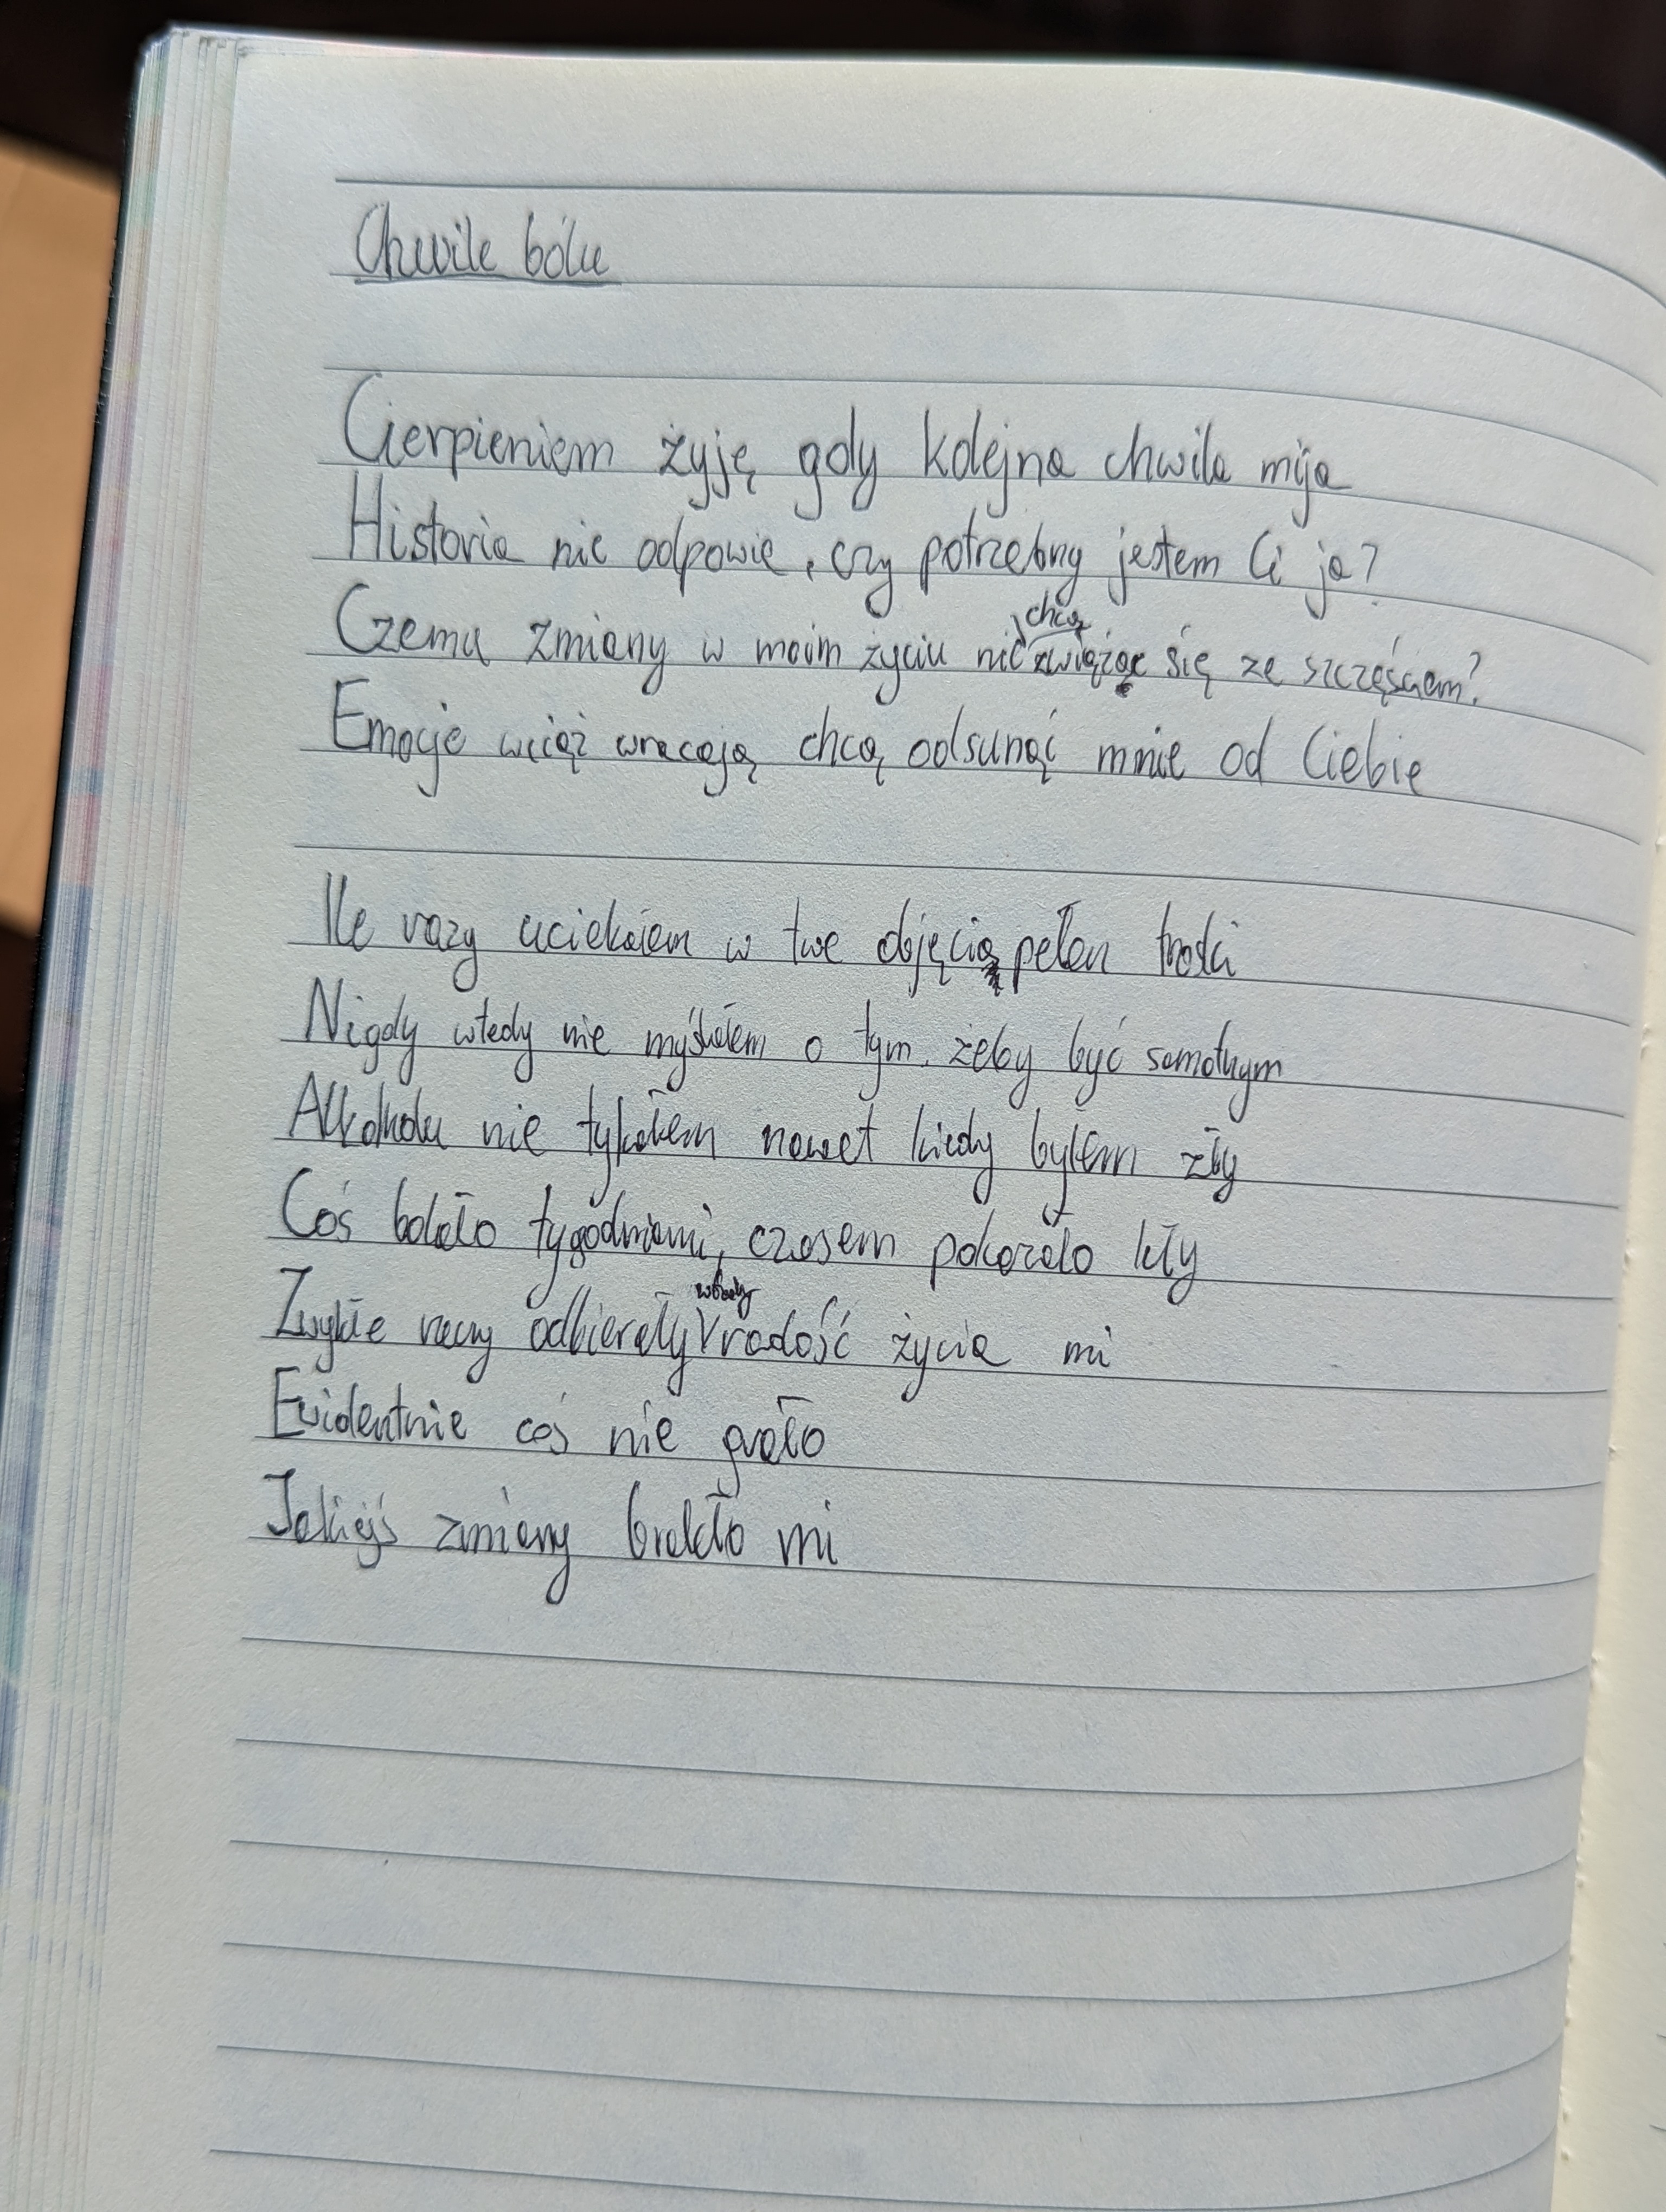 Chwile bólu
Cierpieniem żyję gdy kolejna chwila mija
Historia nie odpowie, czy potrzebny jestem Ci ja?
Czemu zmiany w moim życiu nie chcą związać się ze szczęściem?
Emocje wciąż wracają chcą odsunąć mnie od Ciebie
Ile razy uciekałem w twe objęcia pełen troski
Nigdy wtedy nie myślałem o tym, żeby być samotnym
Alkoholu nie tykałem nawet kiedy byłem zły
Coś bolało tygodniami, czasem pokazało kły
Zwykłe rzeczy odbierały wtedy radość życia mi
Ewidentnie coś nie grało
Jakiejś zmiany brakło mi